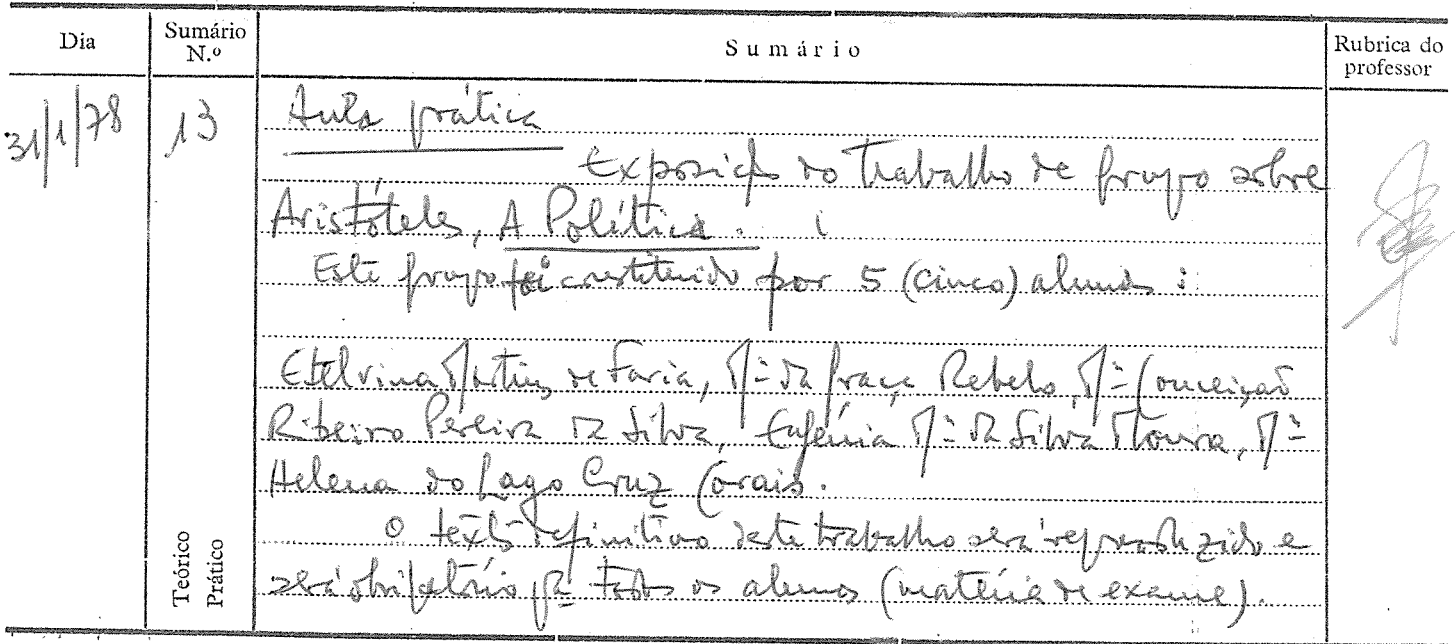 Dia
Sumário N.º
Sumário
Rubrica do professor
31/1/78
13
Aula prática
Exposição do trabalho de grupo sobre
Aristóteles, A Política.
Este grupo foi constituído por 5 (cinco) alunos:
Etelvina Martins de Faria, Mª da Graça Rebelo, Mª Conceição
Ribeiro Pereira da Silva, Eugénia Mª da Silva Moura, Mª
Helena do Lago Cruz Corais.
O texto definitivo deste trabalho será reproduzido e
será obrigatório pª todos os alunos (matéria de exame).
Teórico
Prático